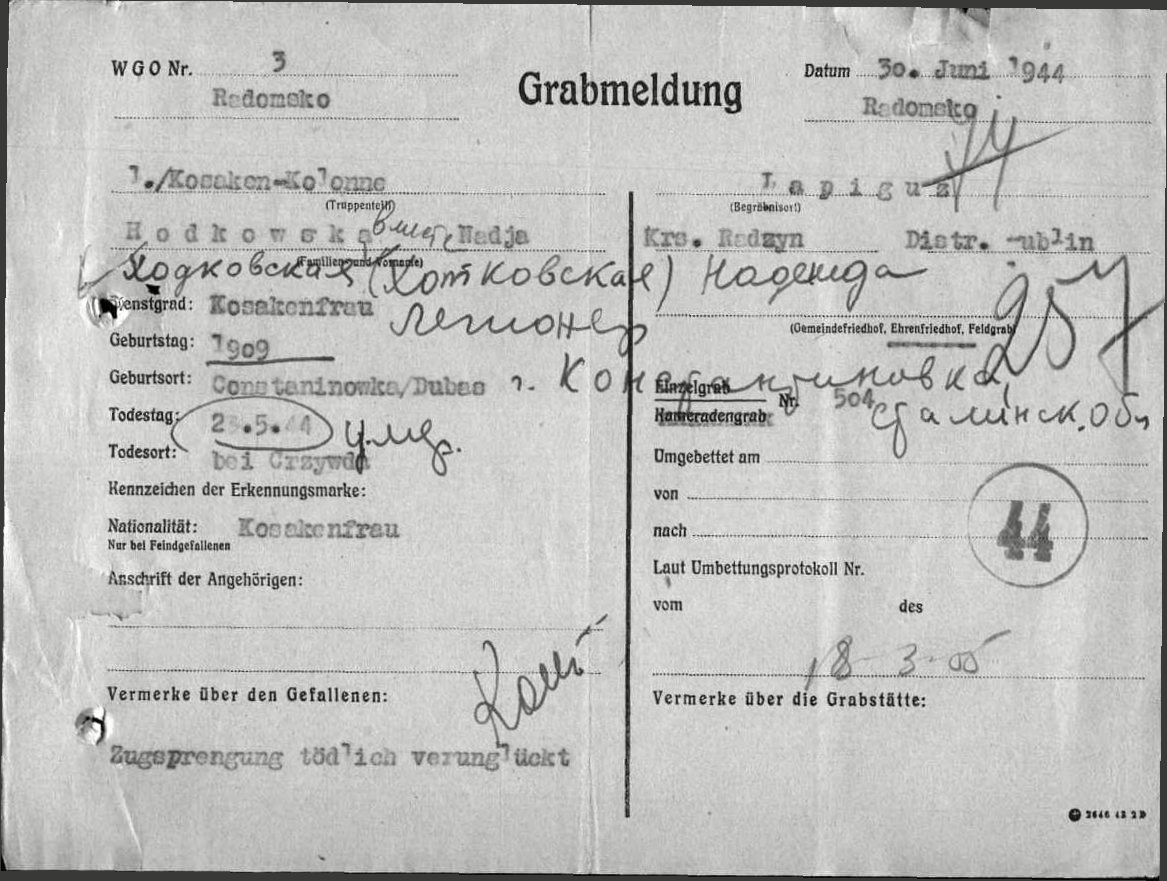 WGO Nr. 3
Radomsko
Grabmeldung
Datum 30. Juni 1944
Radomsko
1./Kosaken-Kolonne
(Truppenteil)
Hodkowska Nadja
(Familien- und Vorname)
Ходковская (Хотковская) Надежда
Dienstgrad: Kosakenfrau легионер
Geburtstag: 1909
Geburtsort: Constaninowka/Dubas г. Константиновка, Сталинск. Обл
Todestag: 23.5.44 умер.
Todesort: bei Crzywda
Kennzeichen der Erkennungsmarke:
Nationalität: Kosakenfrau
Nur bei Feindgefallenen
Anschrift der Angehörigen:
Vermerke über den Gefallenen:
Zugsprengung tödlich verunglückt
Lapiguz
(Begräbnisort)
Krs. Radzyn Distr. -ublin
(Gemeindefriedhof, Ehrenfriedhof, Feldgrab)
957
Einzelgrab
Kameradengrab
Nr. 504
Umgebettet am
von
nach
44
Laut Umbettungsprotokoll Nr.
vom des
18-3-
Vermerke über die Grabstätte: